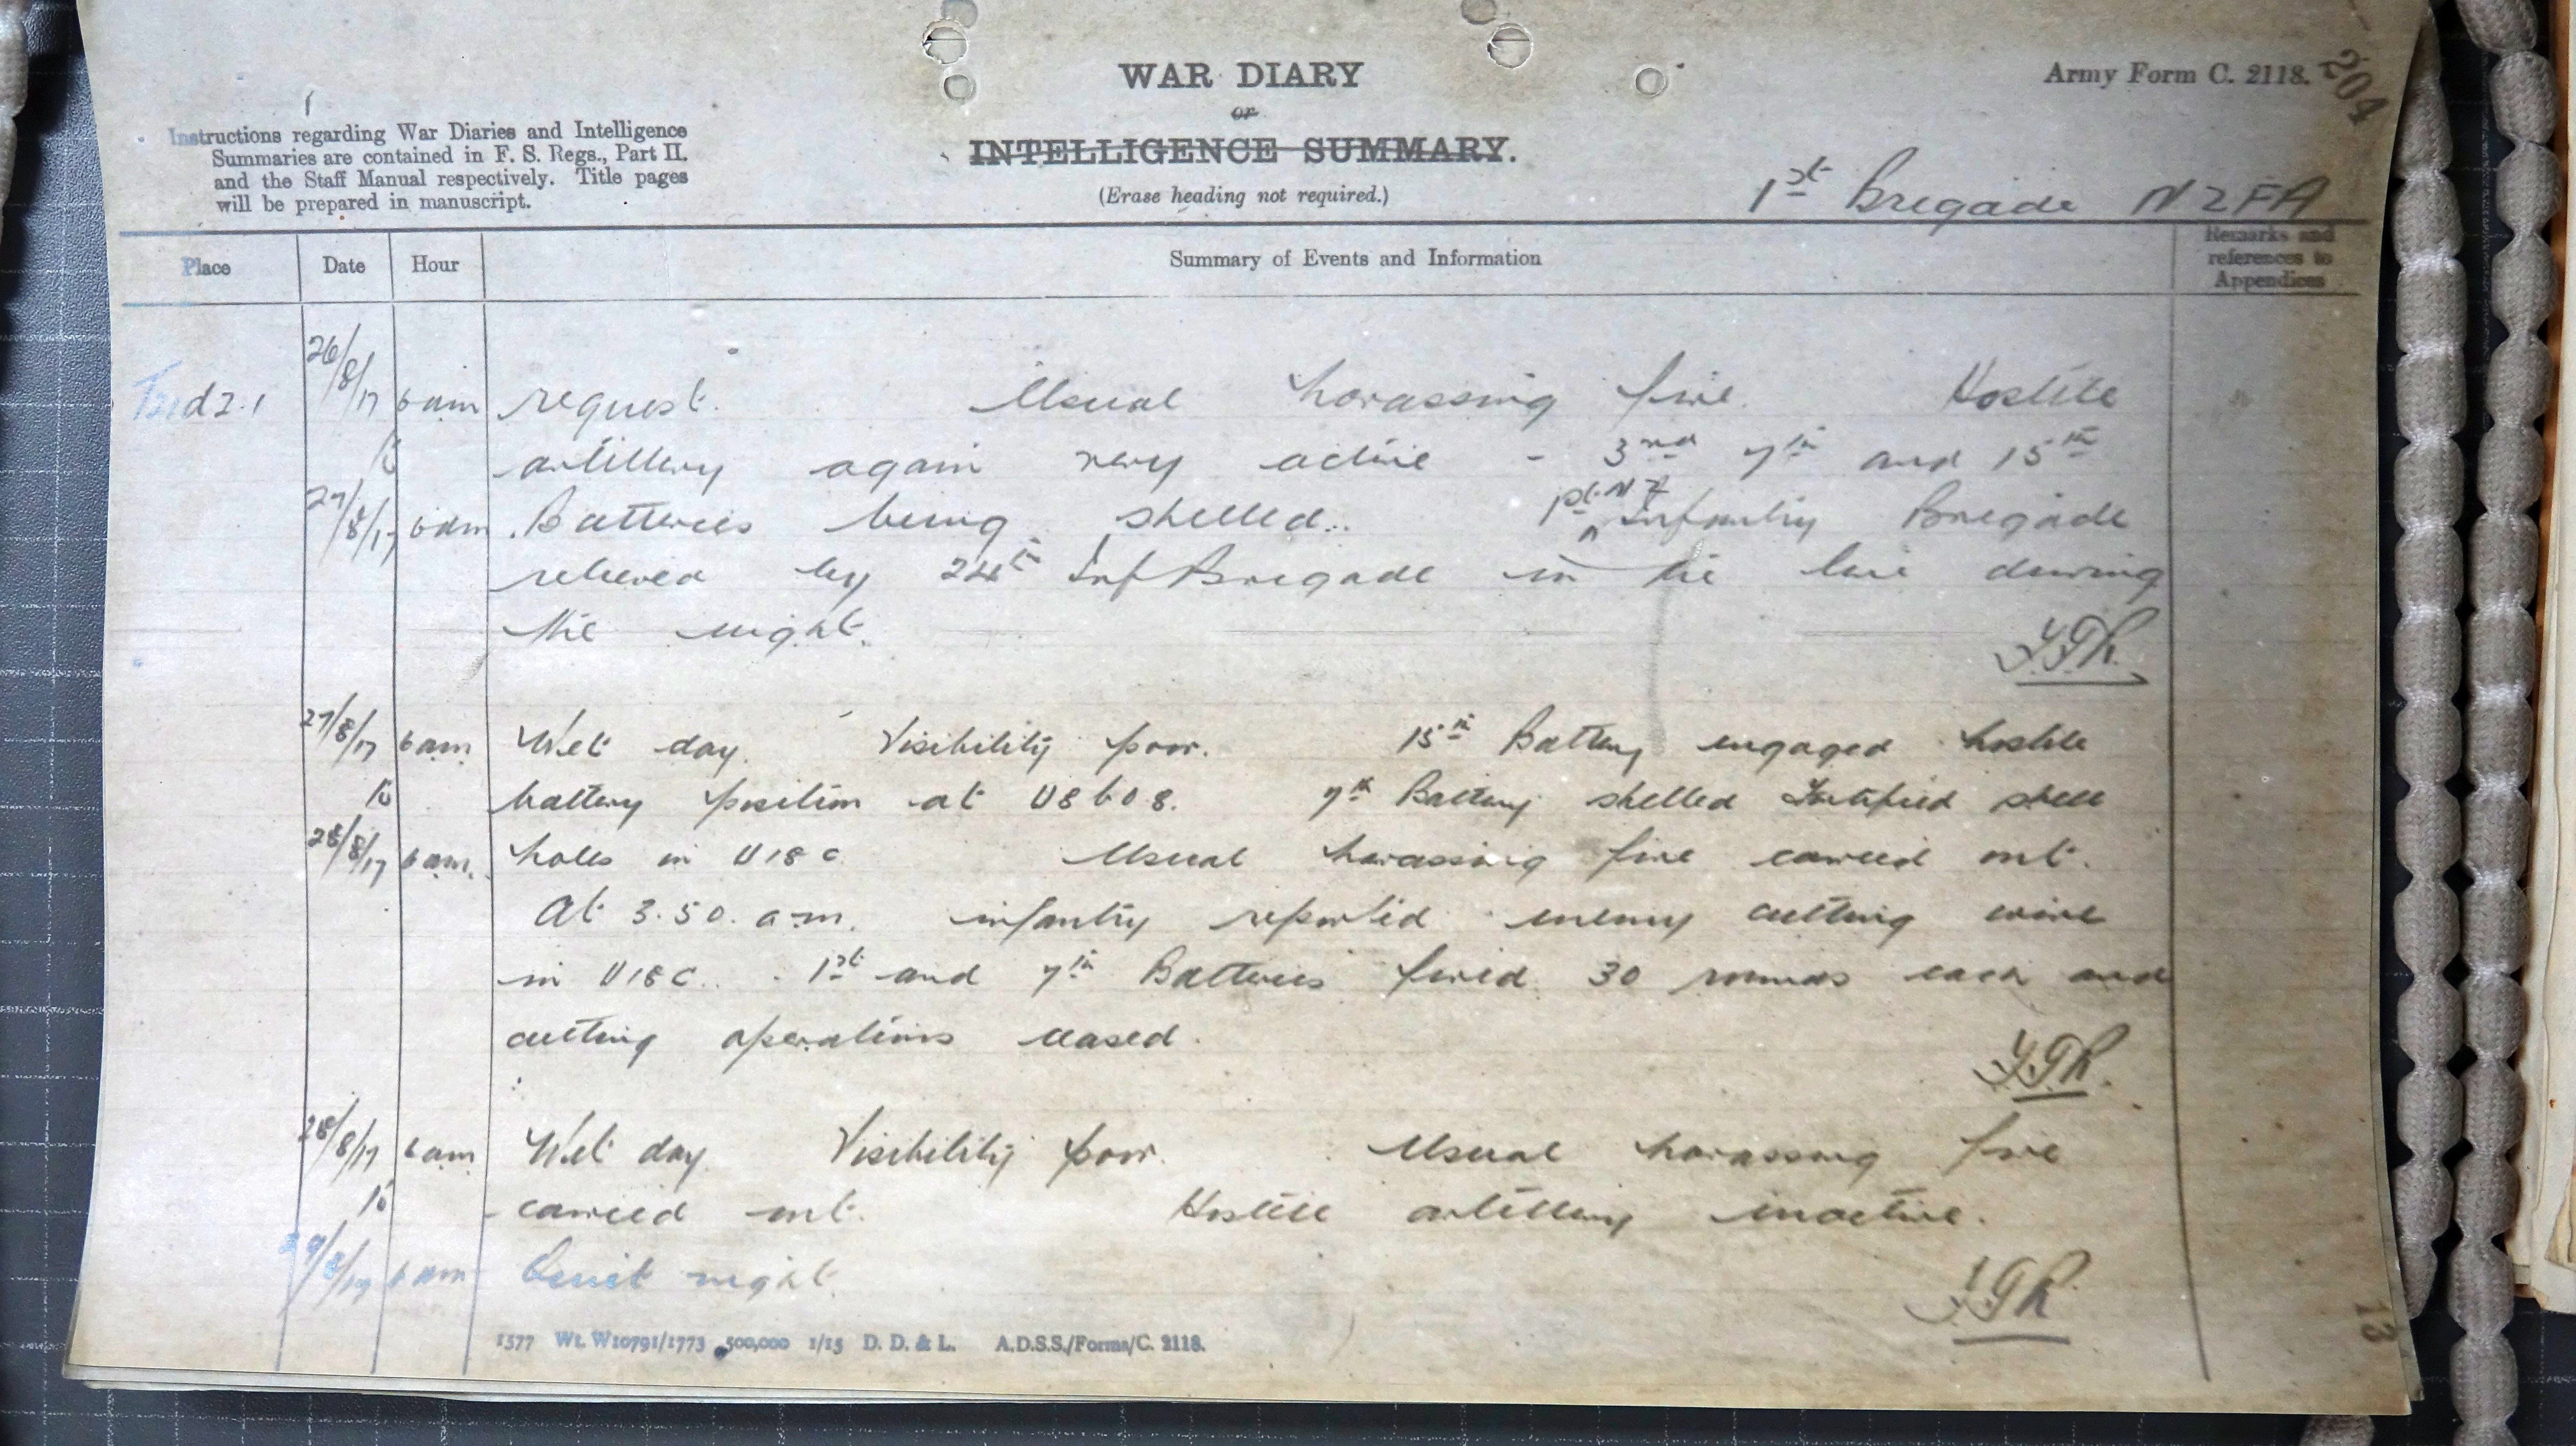 WAR DIARY
or
INTELLIGENCE SUMMARY.
(Erase heading not required.)
Army Form C. 2118.
204
Instructions regarding War Diaries and Intelligence
Summaries are contained in F. S. Regs., Part II.
and the Staff Manual respectively. Title pages
will be prepared in manuscript.
1st Brigade NZFA
Place Date Hour Summary of Events and Information Remarks and references to Appendices
d2.1 26/8/17 6 am request. Usual harassing fire. Hostile
to artillery again very active - 3rd 7th and 15th
27/8/17 6am Batteries being shelled. 1st NZ Infantry Brigade
relieved by 24th Inf Brigade in the line during
the night.
27/8/17 6 am Wet day. Visibility poor. 15th Battery engaged hostile
to battery position at U8b08. 7th Battery shelled Fortified shell
28/8/17 6 am. holes in U18c. Usual harassing fire carried out.
At 3.50. a.m. infantry reported enemy cutting wire
in U18c. 1st and 7th Batteries fired 30 rounds each and
cutting operations ceased.
28/8/17 6am Wet day Visibility poor. Usual harassing fire
to carried out. Hostile artillery inactive.
29/8/17 6 am Quiet night.
1577 Wt. W10791/1773 500,000 1/15 D. D. & L. A.D.S.S./Forms/C. 2118.
13